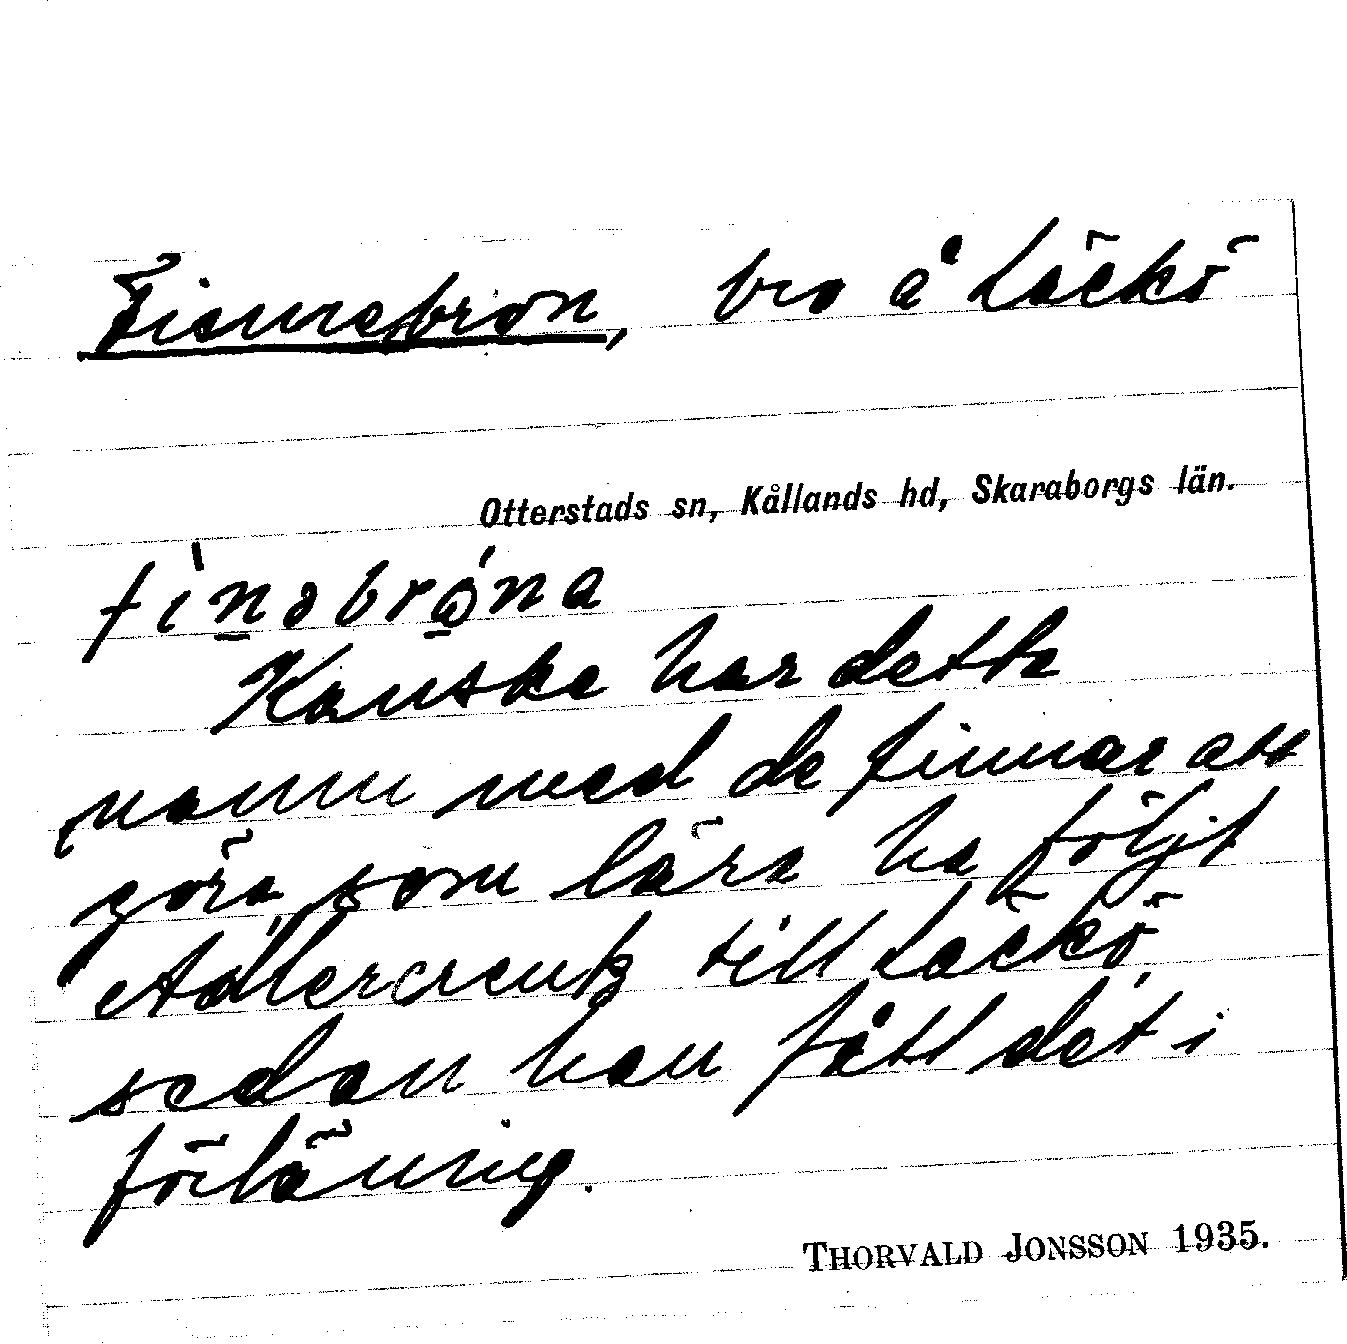 Finnebron, bro å Läckö
Otterstads sn, Kållands hd, Skaraborgs län.
Kanske har detta
namn med de finnar att
göra, som lära ha följt
Adlercreutz till Läckö,
sedan han fått det i
förläning.
THORVALD JONSSON 1935.